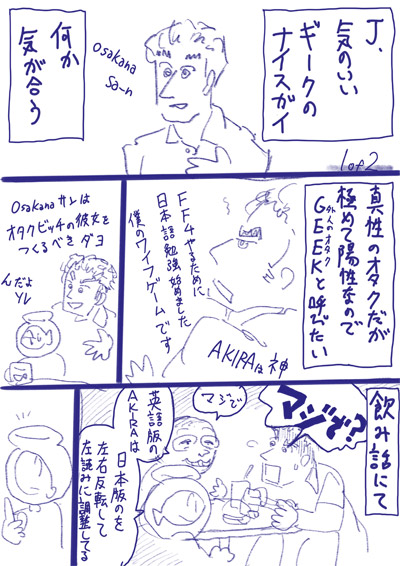 J、
気のいい
ギークの
ナイスガイ
Osakana
Sa-n
何か
気が合う
1of2
真性のオタクだが
極めて陽性なので
外人のオタク
GEEKと呼びたい
FF4やるために
日本語勉強始めました
僕のワイフゲームです
AKIRAは神
Osakanaサンは
オタクビッチの彼女を
つくるべきダヨ
んだよ
ソレ
飲み話にて
マジで?
マジで
英語版の
AKIRAは
日本版のを
左右反転して
左読みに調整してる